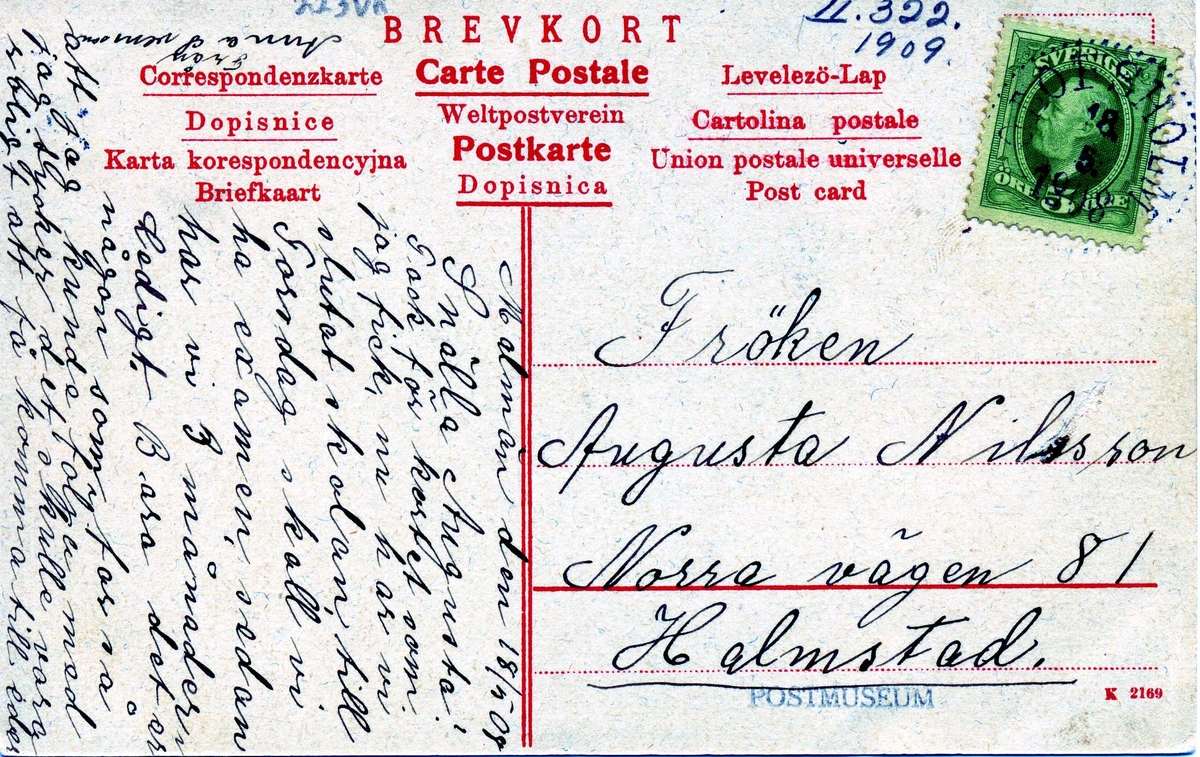 BREVKORT
II. 322.
1909.
Correspondenzkarte
Carte Postale
Levelezö-Lap
Weltpostverein
Dopisnice
Cartolina postale
Postkarte
Karta korespondencyjna
Union postale universelle
Briefkaart
Dopisnica
Post card
SVERIGE
18
5
1908
Fröken
Augusta Nilsson
Norra vägen 81
Halmstad.
POSTMUSEUM
K 2169
den 18/5 08
Snälla Augusta!
Tack för kortet som
jag fick, nu har vi
slutat skolan, till
Torsdag skall vi
ha examen, sedan
har vi 3 månader
Ledigt. Bara det är
någon som far så
att jag kunde följa med
jag tycker det skulle vara
roligt att få komma till eder
Från
Anna